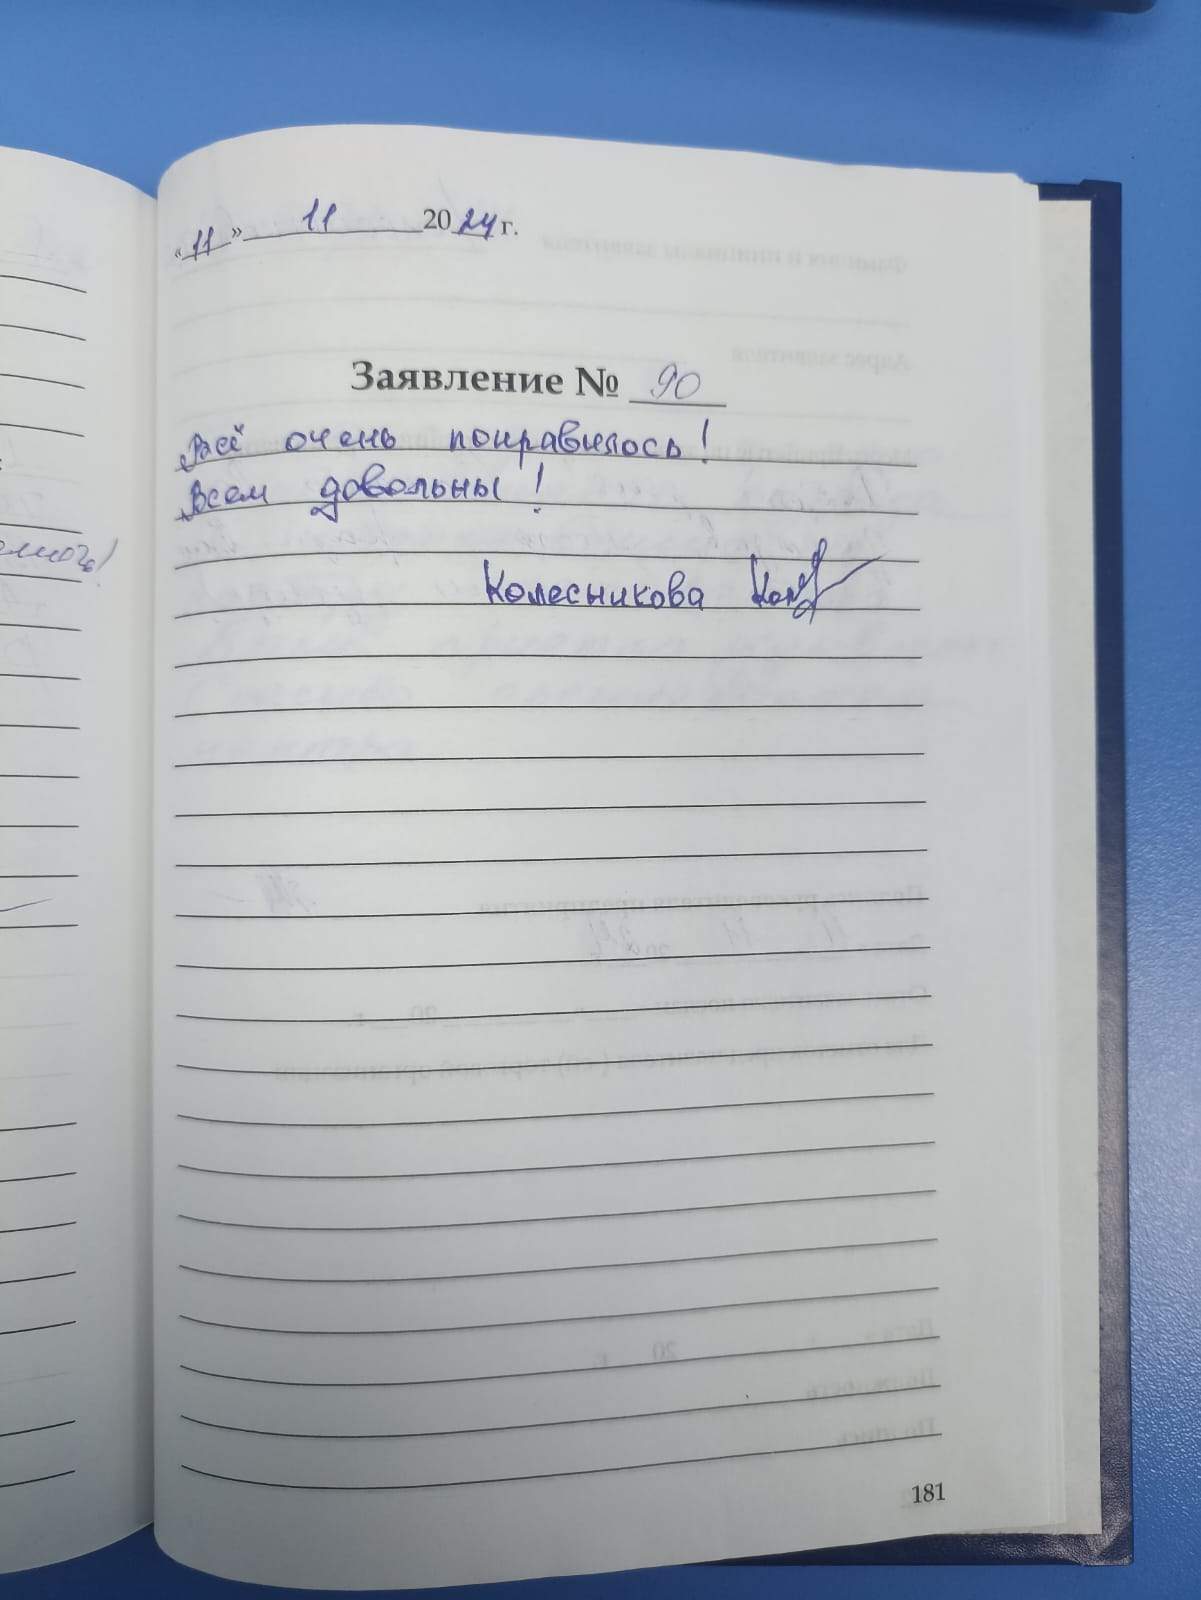 «11» 11 2024 г.
Заявление № 90
Всё очень понравилось!
Всем довольны!
Колесникова
181